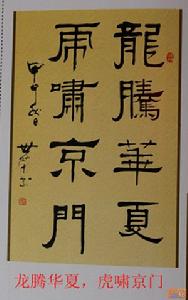 龍騰華夏
虎嘯京門
甲申
龙腾华夏，虎啸京门